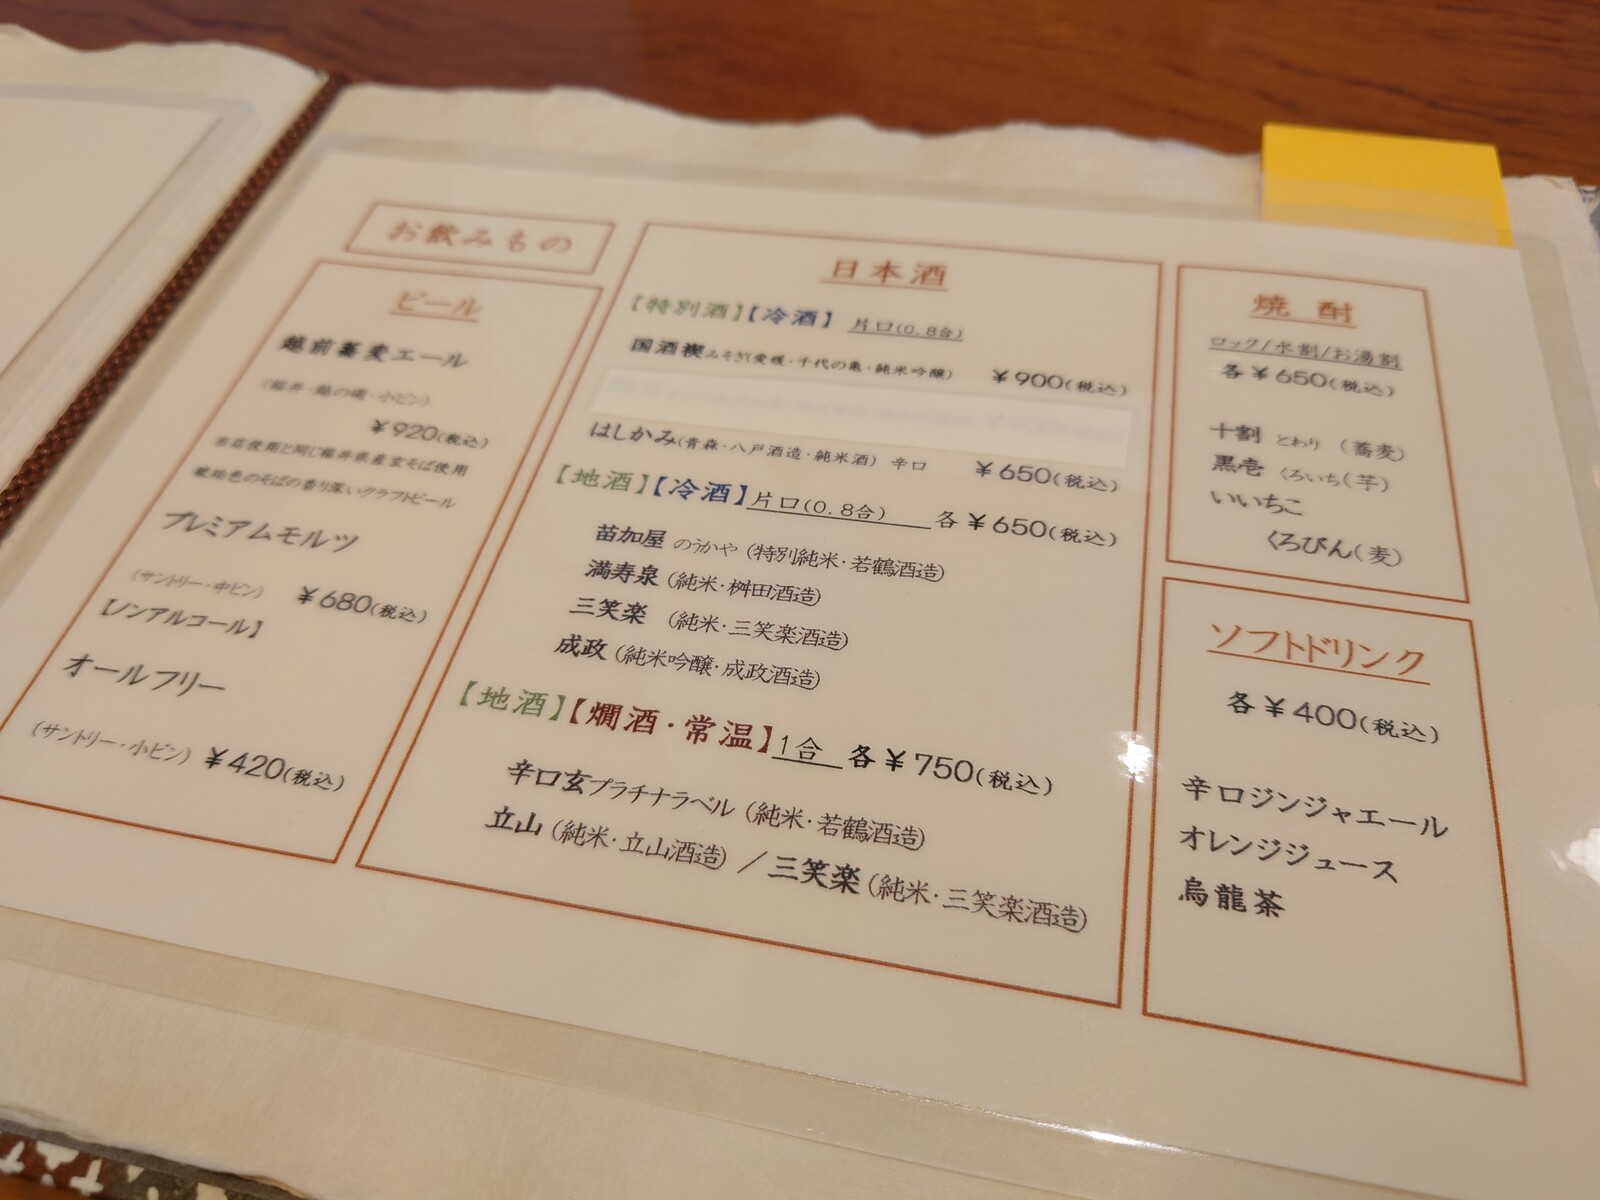 お飲みもの
ビール
越前蕎麦エール
(福井・越の磯・小ビン)
¥920(税込)
当店使用と同じ福井県産玄そば使用
琥珀色のそばの香り深いクラフトビール
プレミアムモルツ
(サントリー・中ビン) ¥680(税込)
【ノンアルコール】
オールフリー
(サントリー・小ビン) ¥420(税込)
日本酒
【特別酒】【冷酒】 片口(0.8合)
国酒禊みそぎ(愛媛・千代の亀・純米吟醸) ¥900(税込)
はしかみ(青森・八戸酒造・純米酒) 辛口 ¥650(税込)
【地酒】【冷酒】片口(0.8合) 各¥650(税込)
苗加屋 のうかや (特別純米・若鶴酒造)
満寿泉 (純米・桝田酒造)
三笑楽 (純米・三笑楽酒造)
成政 (純米吟醸・成政酒造)
【地酒】【燗酒・常温】1合 各¥750(税込)
辛口玄プラチナラベル (純米・若鶴酒造)
立山 (純米・立山酒造) / 三笑楽 (純米・三笑楽酒造)
焼酎
ロック/水割/お湯割
各¥650(税込)
十割 とわり (蕎麦)
黒壱 くろいち(芋)
いいちこ
くろびん(麦)
ソフトドリンク
各¥400(税込)
辛口ジンジャエール
オレンジジュース
烏龍茶